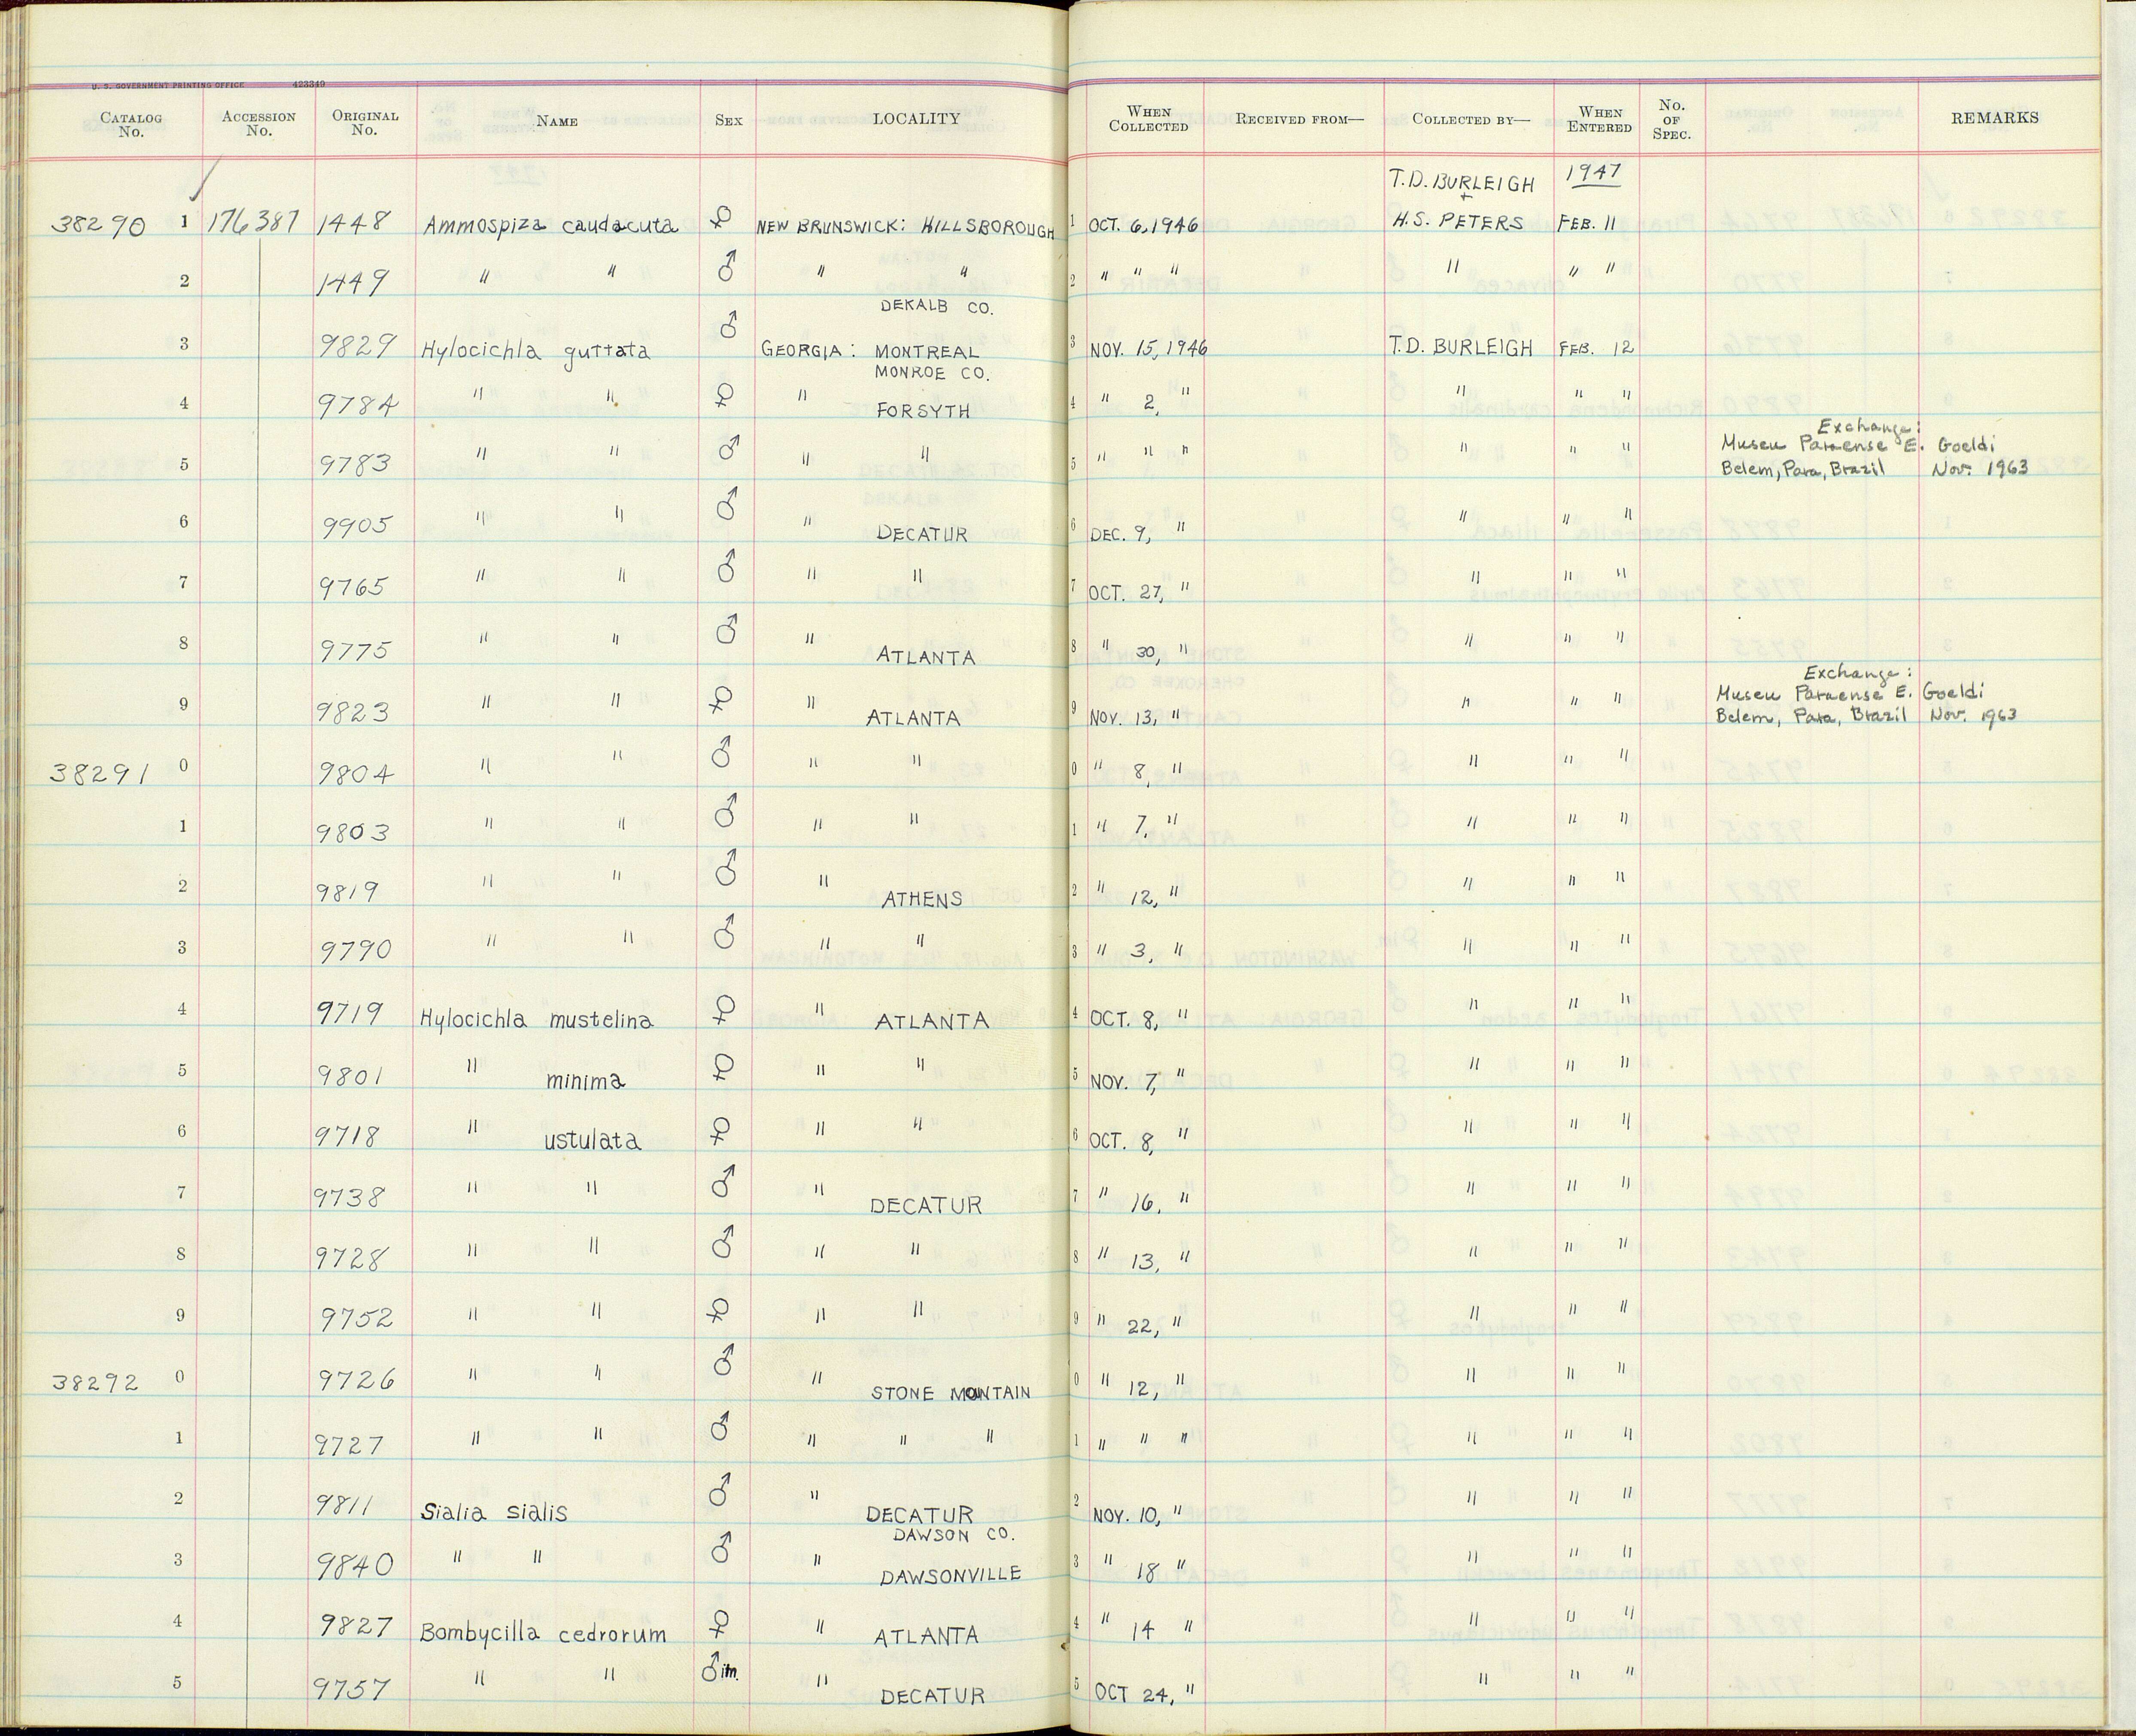 U. S. GOVERNMENT PRINTING OFFICE 423349
CATALOG No. ACCESSION No. ORIGINAL No. NAME SEX LOCALITY WHEN COLLECTED RECEIVED FROM— COLLECTED BY— WHEN ENTERED No. OF SPEC. REMARKS
T.D. BURLEIGH 1947
+
38290 1 176387 1448 Ammospiza caudacuta ♀ NEW BRUNSWICK: HILLSBOROUGH 1 OCT. 6, 1946 H.S. PETERS FEB. 11
2 1449 " " ♂ " " 2 " " " " " "
DEKALB CO.
3 9829 Hylocichla guttata ♂ GEORGIA: MONTREAL 3 NOV. 15, 1946 T.D. BURLEIGH FEB. 12
MONROE CO.
4 9784 " " ♀ " FORSYTH 4 " 2, " " " "
Exchange:
Museu Paraense E. Goeldi
5 9783 " " ♂ " " 5 " " " " " " Belem, Para, Brazil Nov. 1963
6 9905 " " ♂ " DECATUR 6 DEC. 9, " " " "
7 9765 " " ♂ " " 7 OCT. 27, " " " "
8 9775 " " ♂ " ATLANTA 8 " 30, " " " "
Exchange:
Museu Paraense E. Goeldi
9 9823 " " ♀ " ATLANTA 9 NOV. 13, " " " " Belem, Para, Brazil Nov. 1963
38291 0 9804 " " ♂ " " 0 " 8, " " " "
1 9803 " " ♂ " " 1 " 7, " " " "
2 9819 " " ♂ " ATHENS 2 " 12, " " " "
3 9790 " " ♂ " " 3 " 3, " " " "
4 9719 Hylocichla mustelina ♀ " ATLANTA 4 OCT. 8, " " " "
5 9801 " minima ♀ " " 5 NOV. 7, " " " "
6 9718 " ustulata ♀ " " 6 OCT. 8, " " " "
7 9738 " " ♂ " DECATUR 7 " 16, " " " "
8 9728 " " ♂ " " 8 " 13, " " " "
9 9752 " " ♀ " " 9 " 22, " " " "
38292 0 9726 " " ♂ " STONE MOUNTAIN 0 " 12, " " " "
1 9727 " " ♂ " " " 1 " " " " " "
2 9811 Sialia sialis ♂ " DECATUR 2 NOV. 10, " " " "
DAWSON CO.
3 9840 " " ♂ " DAWSONVILLE 3 " 18 " " " "
4 9827 Bombycilla cedrorum ♀ " ATLANTA 4 " 14 " " " "
5 9757 " " ♂ im. " DECATUR 5 OCT 24, " " " "